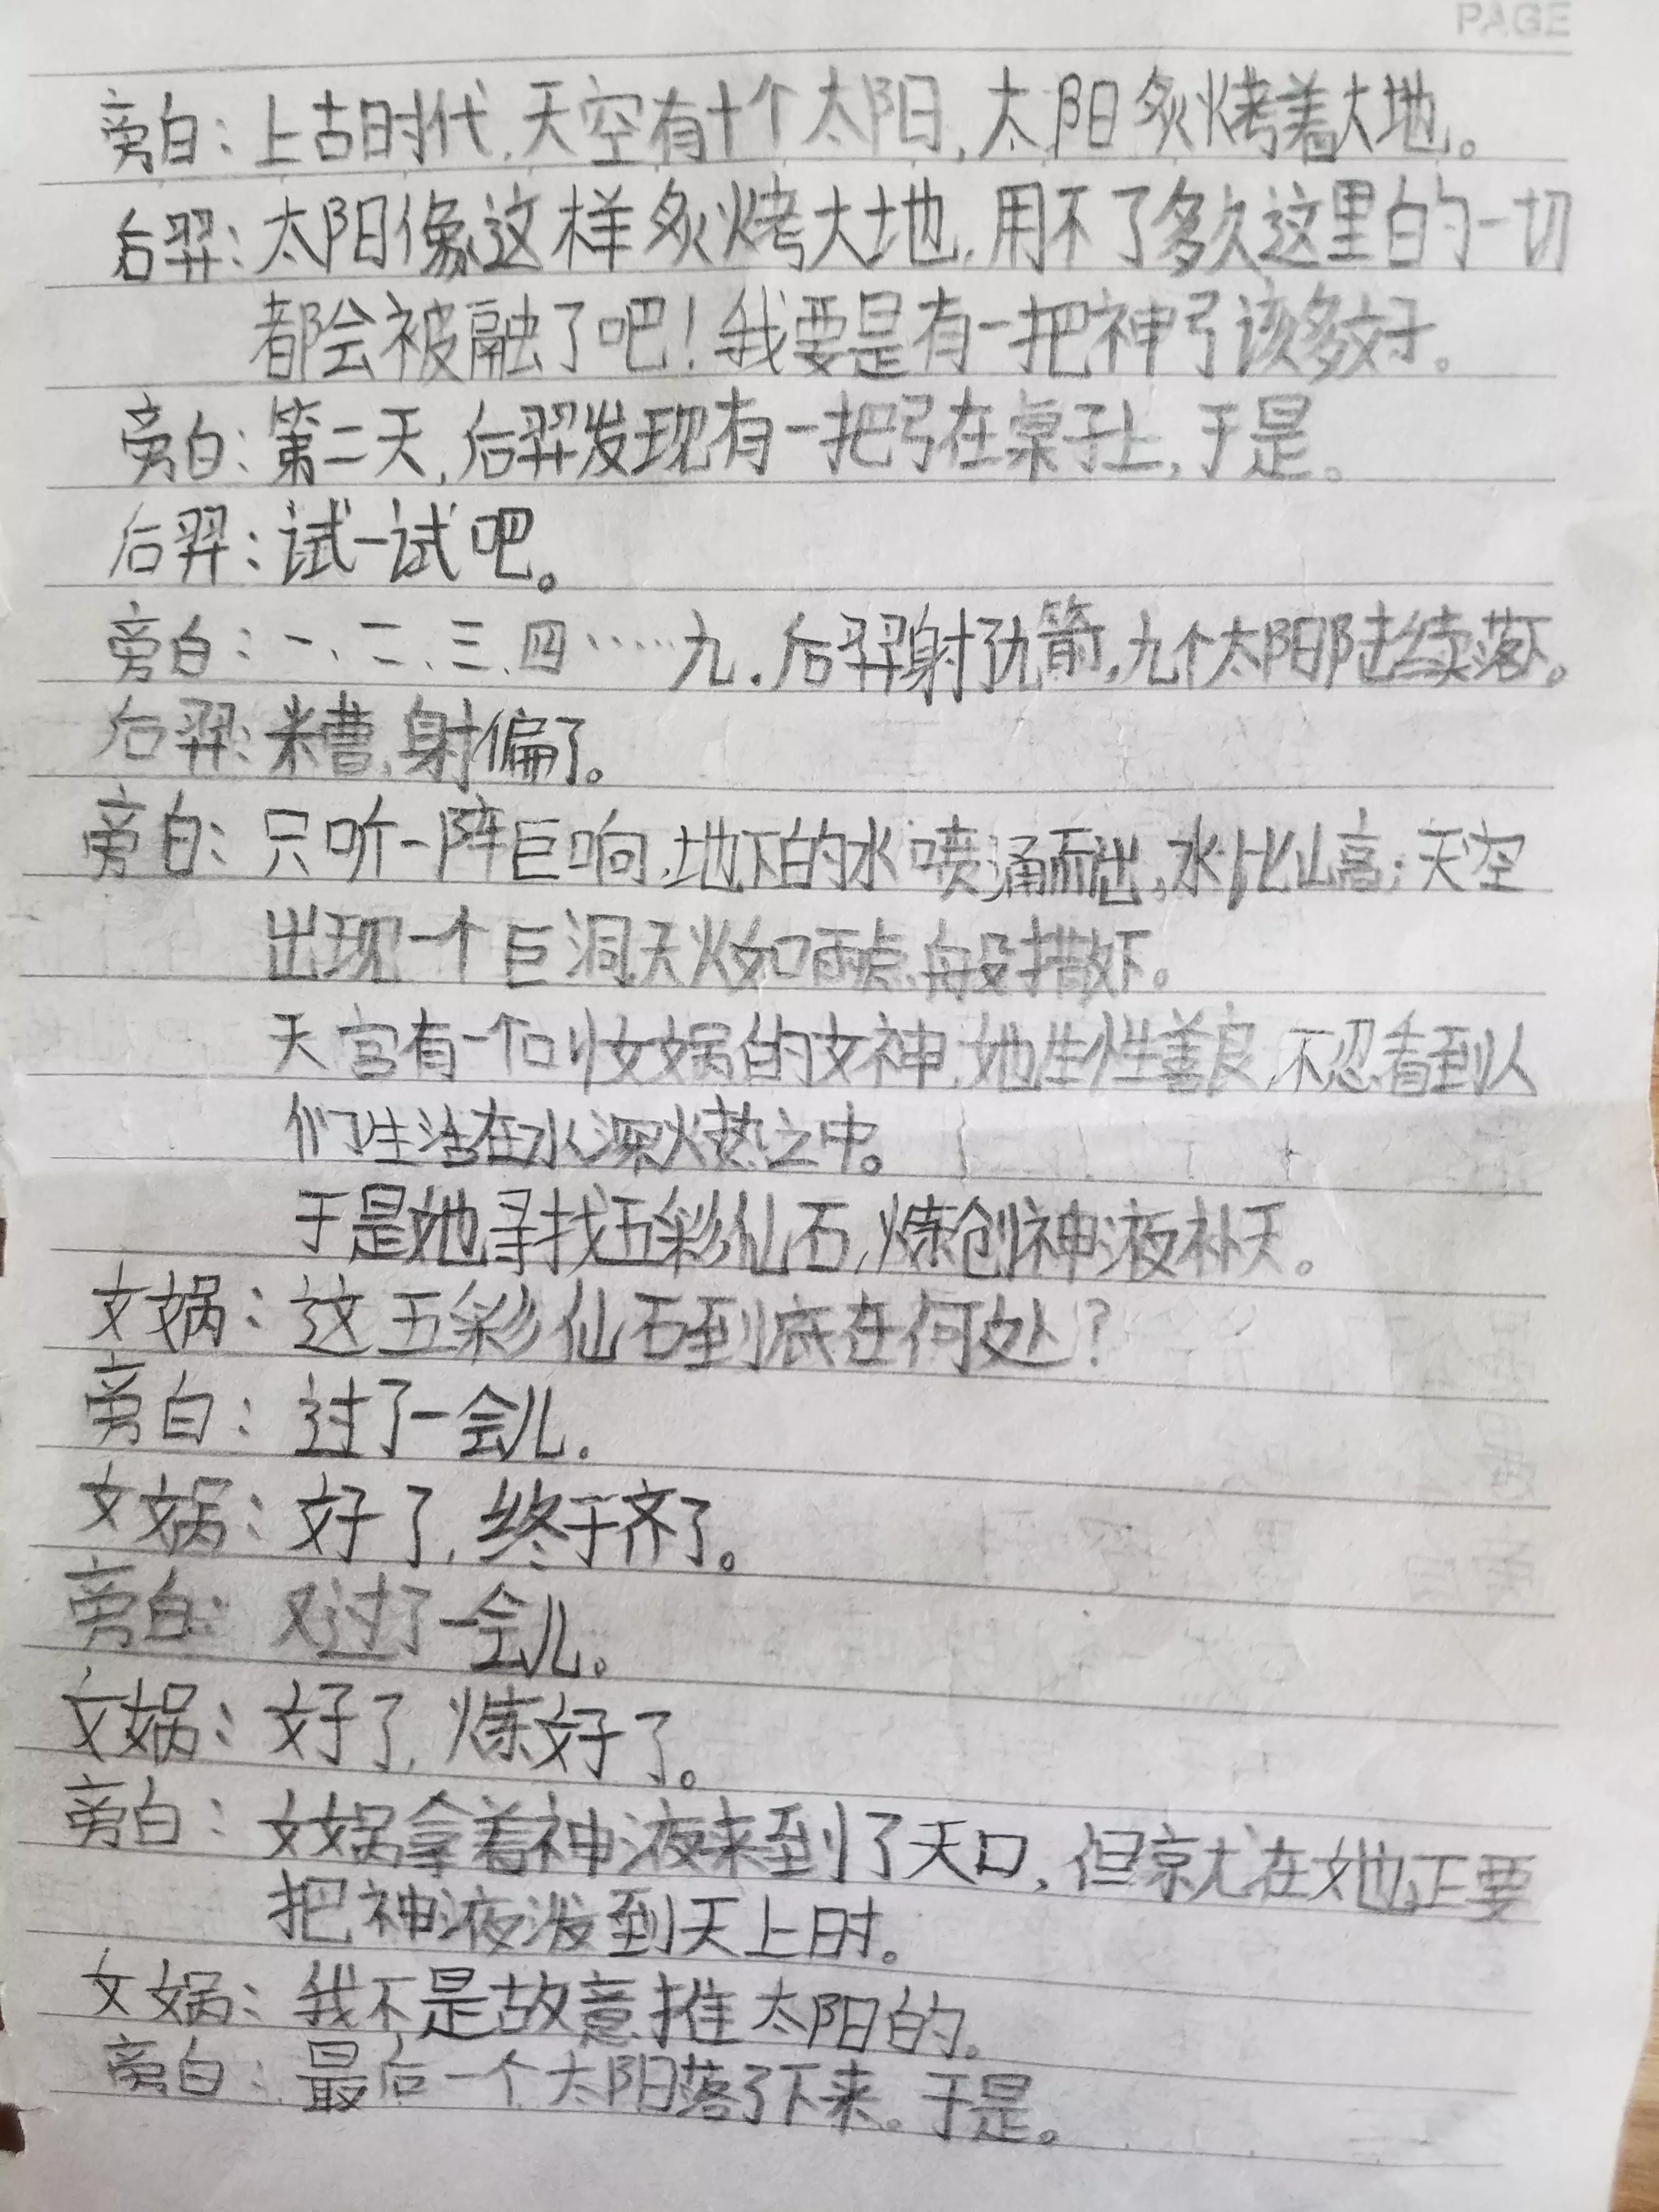 PAGE
旁白：上古时代，天空有十个太阳，太阳炙烤着大地。
后羿：太阳像这样炙烤大地，用不了多久这里的一切
都会被融了吧！我要是有一把神弓该多好。
旁白：第二天，后羿发现有一把弓在桌子上，于是。
后羿：试一试吧。
旁白：一、二、三、四……九．后羿射了九箭，九个太阳陆续落下。
后羿：糟，射偏了。
旁白：只听一阵巨响，地下的水喷涌而出，水比山高；天空
出现一个巨洞天火如雨点般撒下。
天宫有一个叫女娲的女神，她生性善良，不忍看到人
们生活在水深火热之中。
于是她寻找五彩仙石，炼创神液补天。
女娲：这五彩仙石到底在何处？
旁白：过了一会儿．
女娲：好了，终于齐了。
旁白：又过了一会儿。
女娲：好了，炼好了。
旁白：女娲拿着神液来到了天口，但就在她正要
把神液泼到天上时。
女娲：我不是故意推太阳的。
旁白：最后一个太阳落了下来。于是。